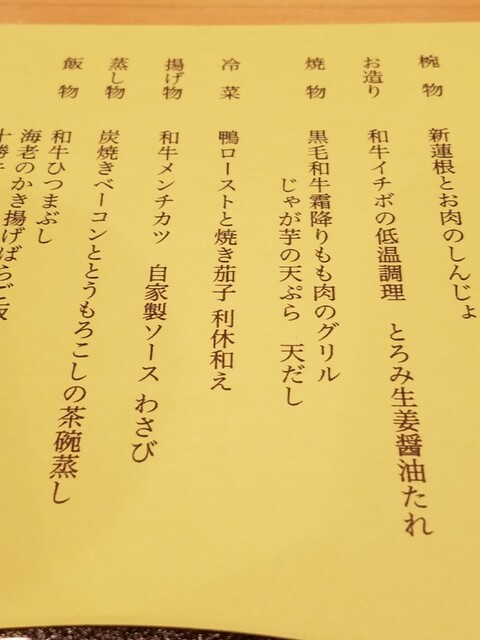 椀物
新蓮根とお肉のしんじょ
お造り
和牛イチボの低温調理 とろみ生姜醤油たれ
焼物
黒毛和牛霜降りもも肉のグリル
じゃが芋の天ぷら 天だし
冷菜
鴨ローストと焼き茄子 利休和え
揚げ物
和牛メンチカツ 自家製ソース わさび
蒸し物
炭焼きベーコンととうもろこしの茶碗蒸し
飯物
和牛ひつまぶし
海老のかき揚げばらご飯